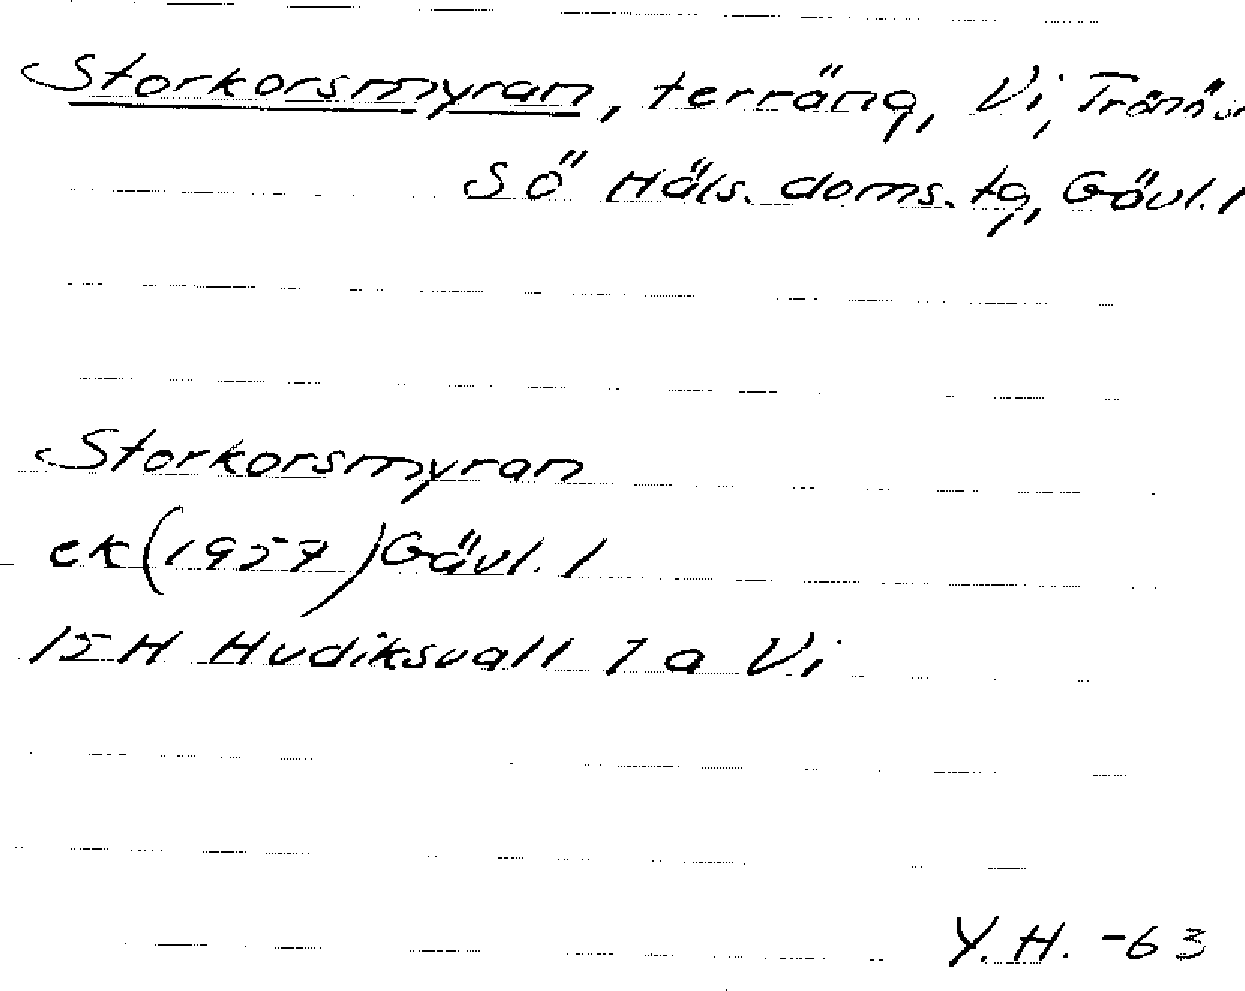 Storkorsmyran, terräng, Vi,
SÖ Häls. doms. tg, Gävl. l
Storkorsmyran
ek (1957) Gävl. l
15H Hudiksvall 7 a Vi
Y.H. -63